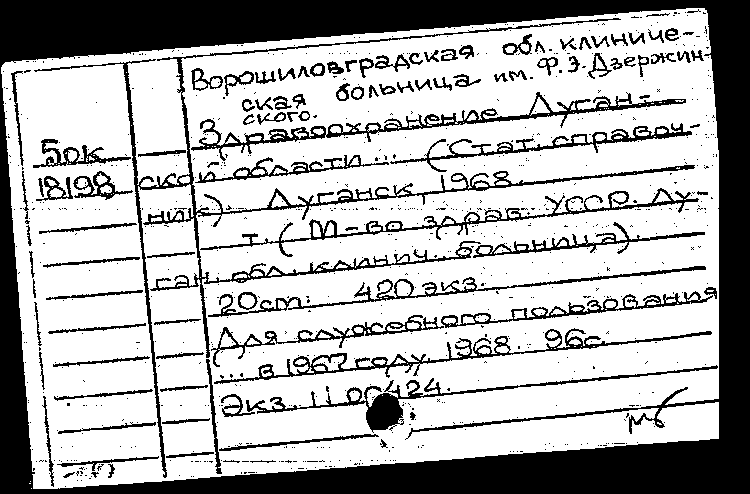 Ворошиловградская обл. клиниче-
ская больница им. Ф.Э. Дзержин-
ского.
Здравоохранение Луган-
50к
18198
ской области... (Стат. справоч-
ник). Луганск, 1968.
т. (М-во здрав. УССР. Лу-
ган. обл. клинич. больница).
20см. 420 экз.
Для служебного пользования
... в 1967 году. 1968. 96с.
Экз. 1100424.